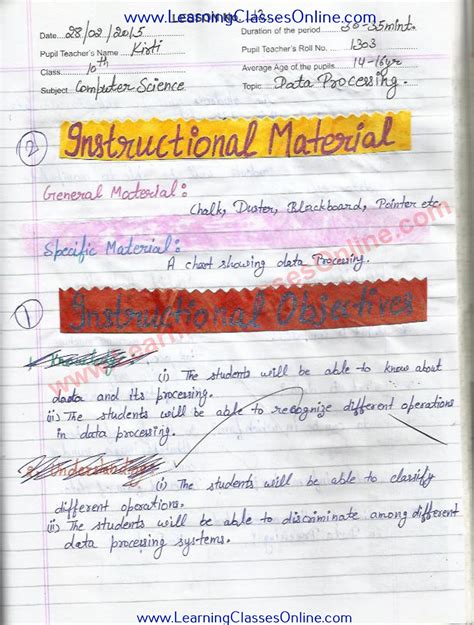 www.LearningClassesOnline.com
LESSON No. 12
Date 28/02/2015 Duration of the period 30-35mint.
Pupil Teacher's Name Kirti Pupil Teacher's Roll No. 1303
Class 10th Average Age of the pupils 14-16yr
Subject Computer Science Topic Data Processing.
2 Instructional Material
General Material:
Chalk, Duster, Blackboard, Pointer etc.
Specific Material:
A chart showing data Processing.
1 Instructional Objectives
(i) The students will be able to know about
data and its processing.
(ii) The students will be able to recognize different operations
in data processing.
2. Understanding
(i) The students will be able to classify
different operations.
(ii) The students will be able to discriminate among different
data processing systems.
www.LearningClassesOnline.com
www.LearningClassesOnline.com